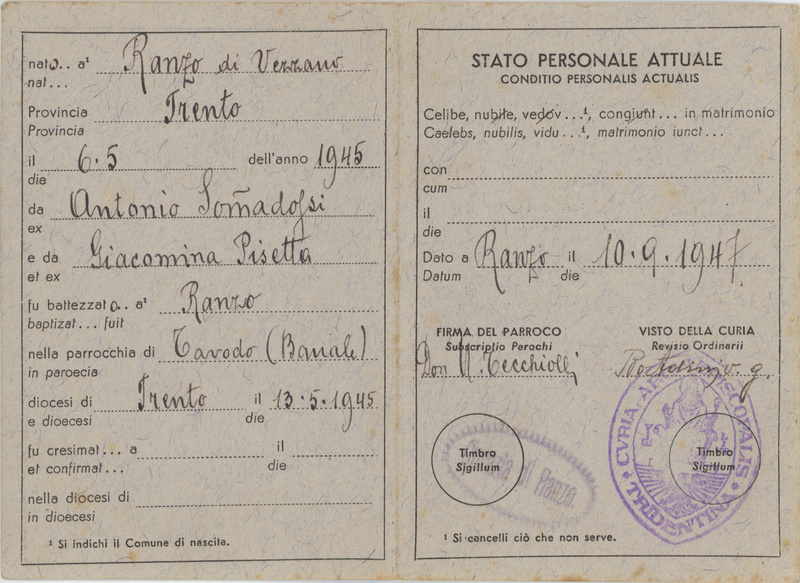 nato.. a¹ Ranzo di Vezzano
nat...
Provincia Trento
Provincia
il 6.5 dell'anno 1945
die
da Antonio Somadossi
ex
e da Giacomina Pisetta
et ex
fu battezzato.. a¹ Ranzo
baptizat... fuit
nella parrocchia di Tavodo (Banale)
in paroecia
diocesi di Trento il 13.5.1945
e dioecesi die
fu cresimat... a il
et confirmat... die
nella diocesi di
in dioecesi
¹ Si indichi il Comune di nascita.
STATO PERSONALE ATTUALE
CONDITIO PERSONALIS ACTUALIS
Celibe, nubile, vedov...¹, congiunt... in matrimonio
Caelebs, nubilis, vidu...¹, matrimonio iunct...
con
cum
il
die
Dato a Ranzo il 10.9.1947
Datum die
FIRMA DEL PARROCO
Subscriptio Parochi
Don
VISTO DELLA CURIA
Revisio Ordinarii
v. g.
Timbro
Sigillum
di Ranzo
Timbro
Sigillum
CVRIA ARCHIEPISCOPALIS TRIDENTINA
¹ Si cancelli ciò che non serve.